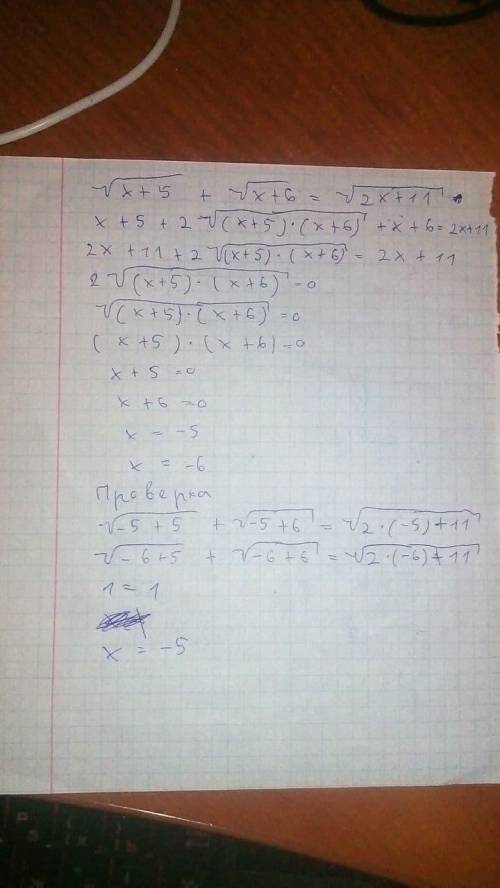 √(x+5) + √(x+6) = √(2x+11)
x + 5 + 2√((x+5)·(x+6)) + x + 6 = 2x+11
2x + 11 + 2√((x+5)·(x+6)) = 2x + 11
2√((x+5)·(x+6)) = 0
√((x+5)·(x+6)) = 0
(x+5)·(x+6) = 0
x + 5 = 0
x + 6 = 0
x = -5
x = -6
Проверка
√(-5+5) + √(-5+6) = √(2·(-5)+11)
√(-6+5) + √(-6+6) = √(2·(-6)+11)
1 = 1
x = -5